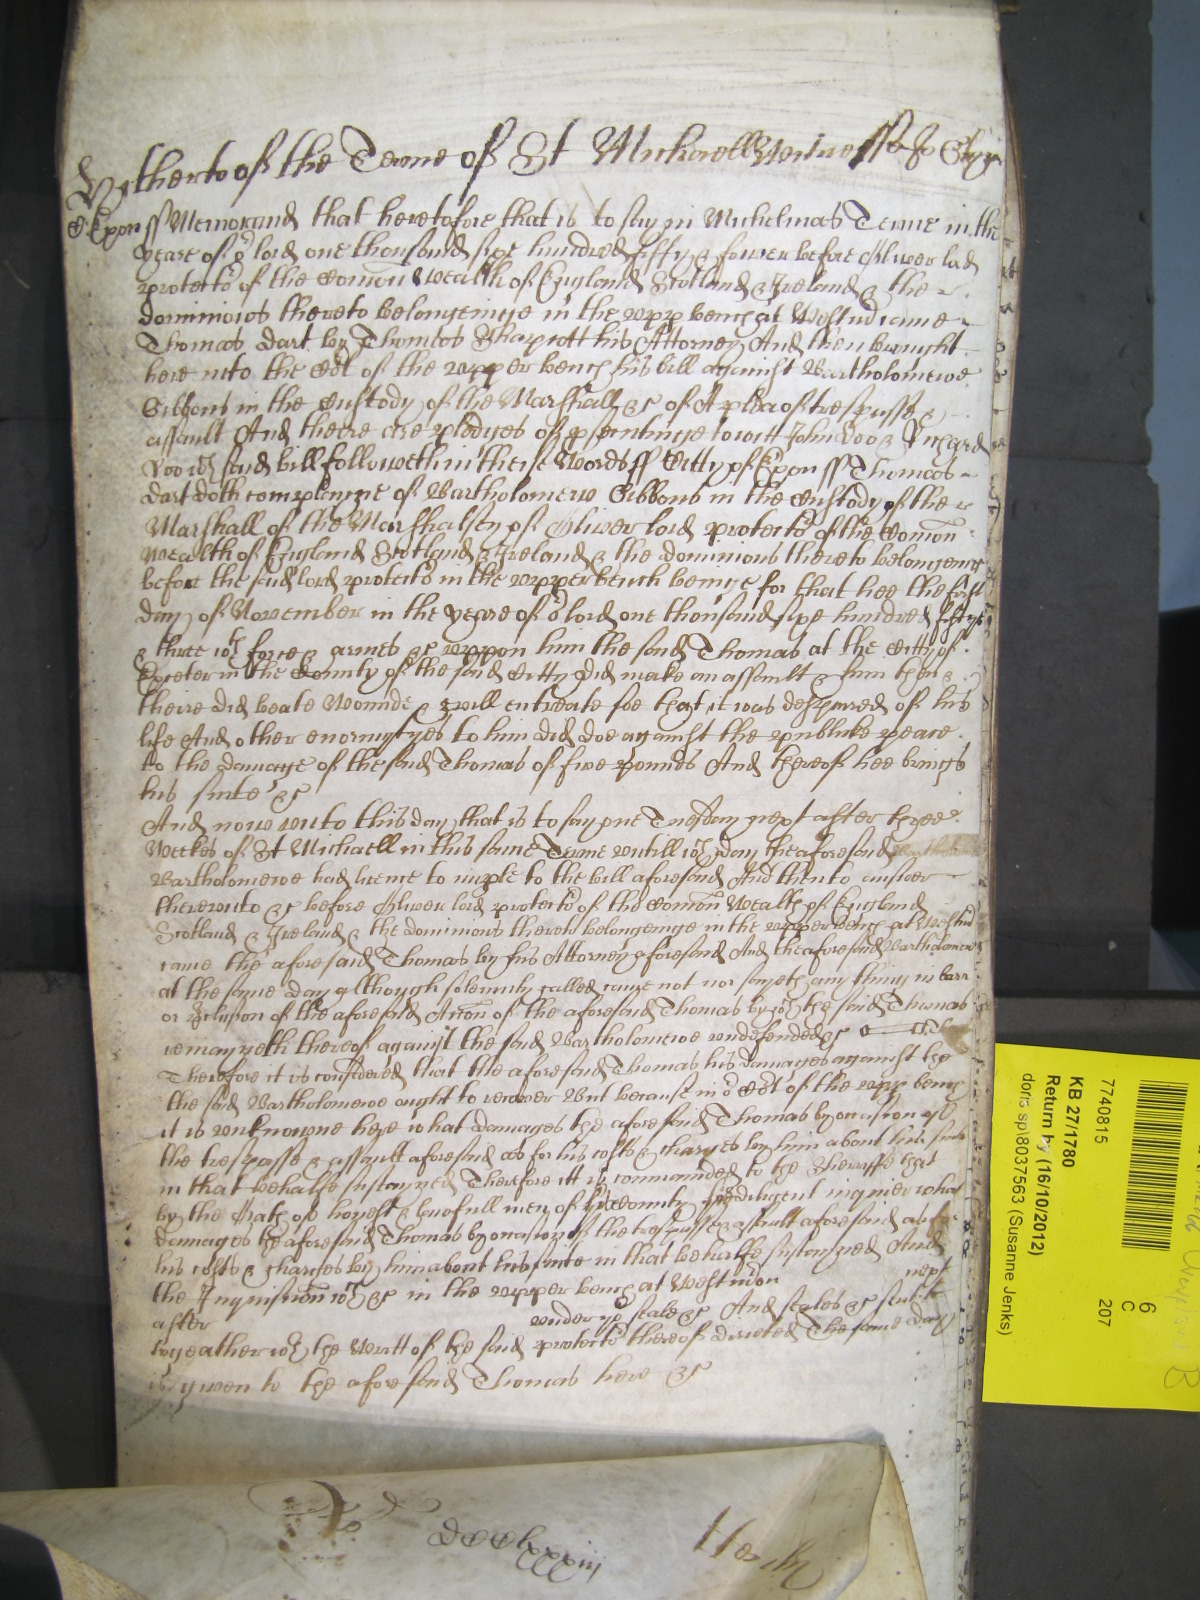 Yet hereto of the Terme of St Michaell Wittnesse Jo Glyn
Exon ss Memorand that heretofore that is to say in Michelmas Terme in the
yeare of or lord one thousand sixe hundred fiffty & fower before Oliver lord
protector of the Comon wealth of England Scotland & Ireland & the
dominions thereto belongeinge in the upp bench at Westm came
Thomas Dart by Thomas Sharpett his Attorney And then brought
here into the Cort of the upper bench his bill against Bartholomewe
Gibbons in the Custody of the Marshall &c of A plea of trespasse &
assault And there are pledges of psecutinge to witt John Doo & Richard
Roo wch said bill followeth in theise Words ss Citty of Exon ss Thomas
Dart doth complayne of Bartholomew Gibbons in the Custody of the
Marshall of the Marshalsey of Oliver lord protector of the Comon
wealth of England Scotland & Ireland & the dominions thereto belongeinge
before the said lord protector in the upper bench beinge for that hee the first
day of November in the yeare of or lord one thousand sixe hundred fiftye
& three wth force & armes &c uppon him the said Thomas at the Citty of
Exeter in the County of the said Citty did make an assault & him then &
there did beate Wounde & evill entreate soe that it was despaired of his
life And other enormityes to him did doe against the publike peace
to the damage of the said Thomas of five pounds And thereof hee brings
his suite &c
And now unto this day that is to say one Tuesday next after three
Weekes of St Michaell in this same Terme untill wch day the aforesaid
Bartholomewe had licence to imple to the bill aforesaid And then to answer
thereunto &c before Oliver lord protector of the Comon Wealth of England
Scotland & Ireland & the dominions thereto belongeinge in the upper bench at Westm
came the aforesaid Thomas by his Attorney aforesaid And the aforesaid Bartholomewe
at the same day although solemnly called came not nor sayeth any thing in barr
or preclusion of the aforesaid Accon of the aforesaid Thomas by wch the said Thomas
remayneth thereof against the said Bartholomewe undefended &c
Therefore it is considered that the aforesaid Thomas his damages against the
the said Bartholomewe ought to recover But because in or Cort of the upp bench
it is unknowne here what damages the aforesaid Thomas by occasion of
the trespasse & assault aforesaid as for his costs & charges by him about his suite
in that behalfe sustayned Therefore itt is commanded to the Sheriffe that
by the Oath of honest & lawfull men of his County hee diligent inquier what
damages the aforesaid Thomas by occasion of the trespasse & assault aforesaid as for
his costs & charges by him about his suite in that behalfe sustayned And
the Inquisicon wch &c in the upper bench at Westm on next
after under ye seale &c And seales &c send
togeather wth the Writt of the said protector thereof directed The same day
is given to the aforesaid Thomas here &c
DCClxxxiij
7740815
KB 27/1780
Return by (16/10/2012)
doris sp\8037563 (Susanne Jenks)
6
C
207
B